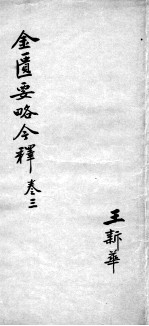 金匱要略今釋 卷三
王新華